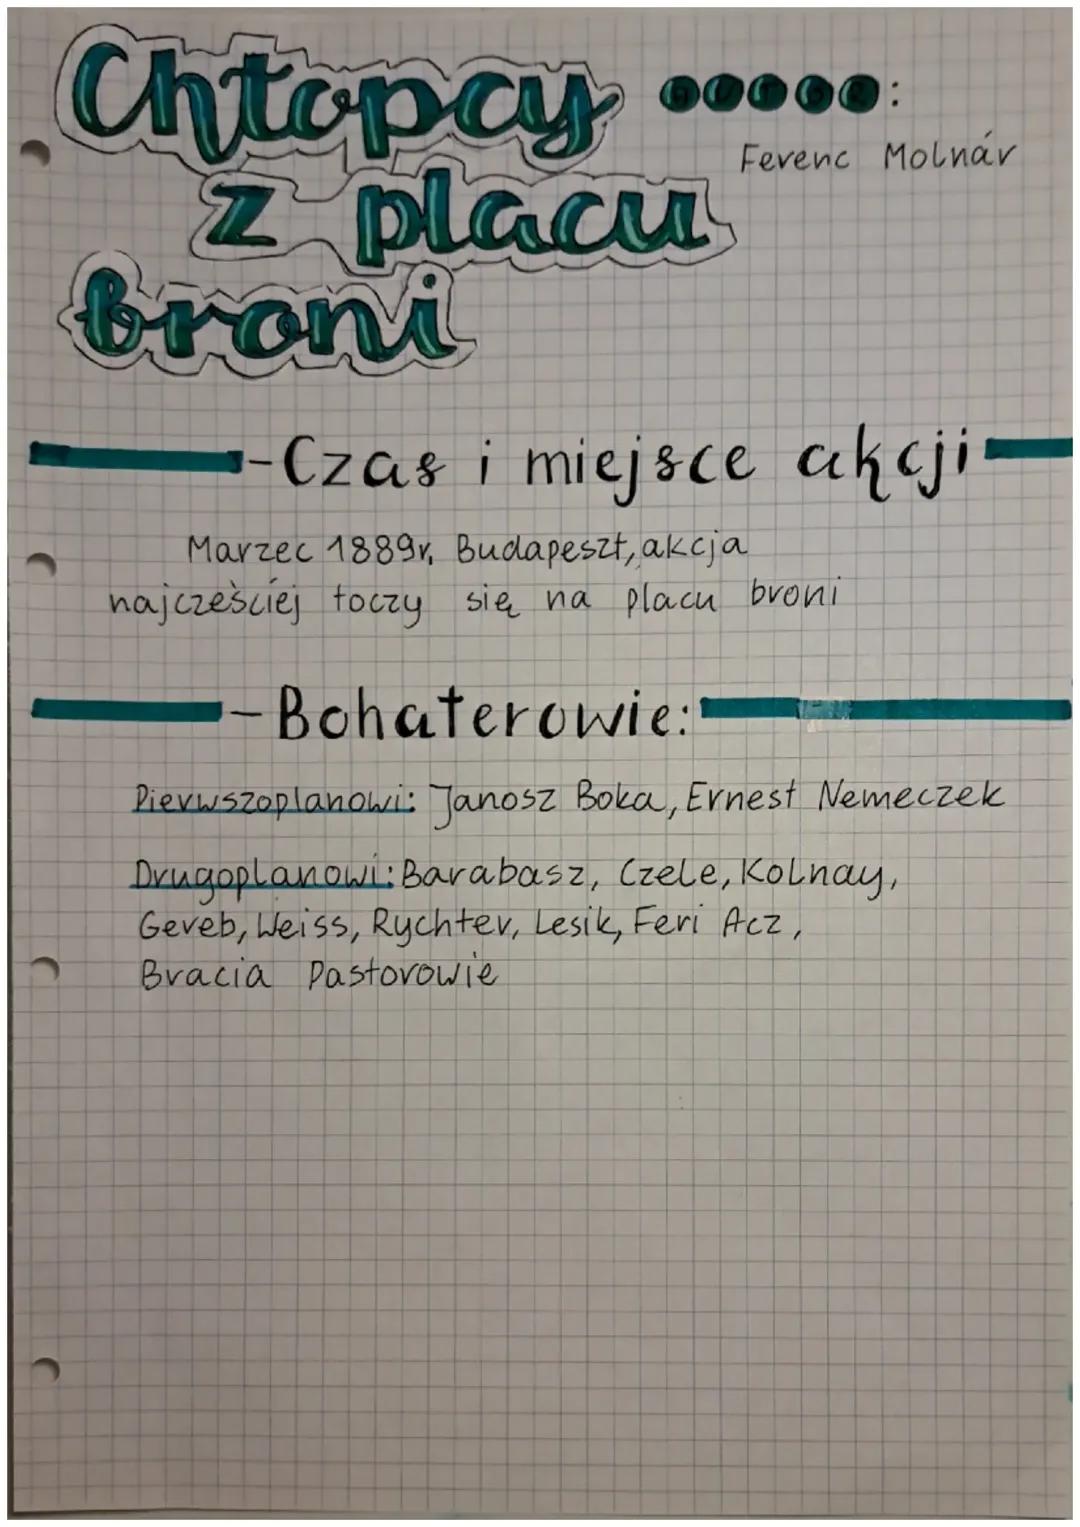 Chłopcy
AUTOR:
Ferenc Molnár
z placu
broni
-Czas i miejsce akcji-
Marzec 1889r, Budapeszt, akcja
najcześciej toczy się na placu broni
-Bohaterowie:
Pierwszoplanowi: Janosz Boka, Ernest Nemeczek
Drugoplanowi: Barabasz, Czele, Kolnay,
Gereb, Weiss, Rychter, Lesik, Feri Acz,
Bracia Pastorowie